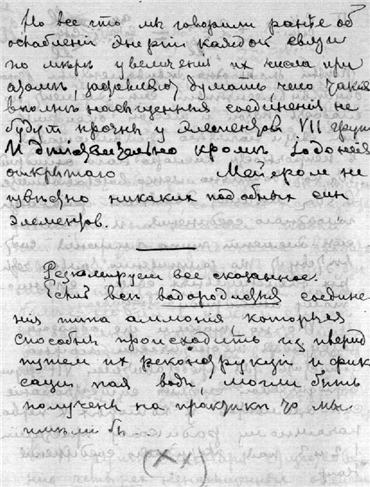 Но все что мы говорили ранѣе об
ослабленiи энергiи каждой связи
по мѣрѣ увеличенiя их числа при
атомѣ, думать что такiя
вполнѣ насыщенныя соединенiя не
будут прочны у элементов VII груп
И дѣйствительно кромѣ iодонiя
открытаго Мейером не
извѣстно никаких подобных
элементов.
Резюмируем все сказанное.
Если все водородистыя соедине
нiя типа аммонiя, которыя
способны происходить из
путем их и фик
сацiи пая воды, могли быть
получены на практикѣ то мы
имѣли бы